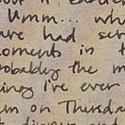 Umm... wh
are had se
oments in t
robably the m
ing I've ever
um on Thursda